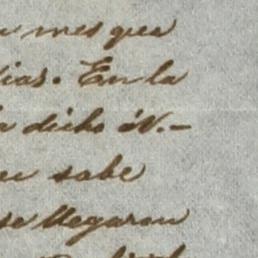 mes que
ias. En la
dicho N.
sabe
se llegaron